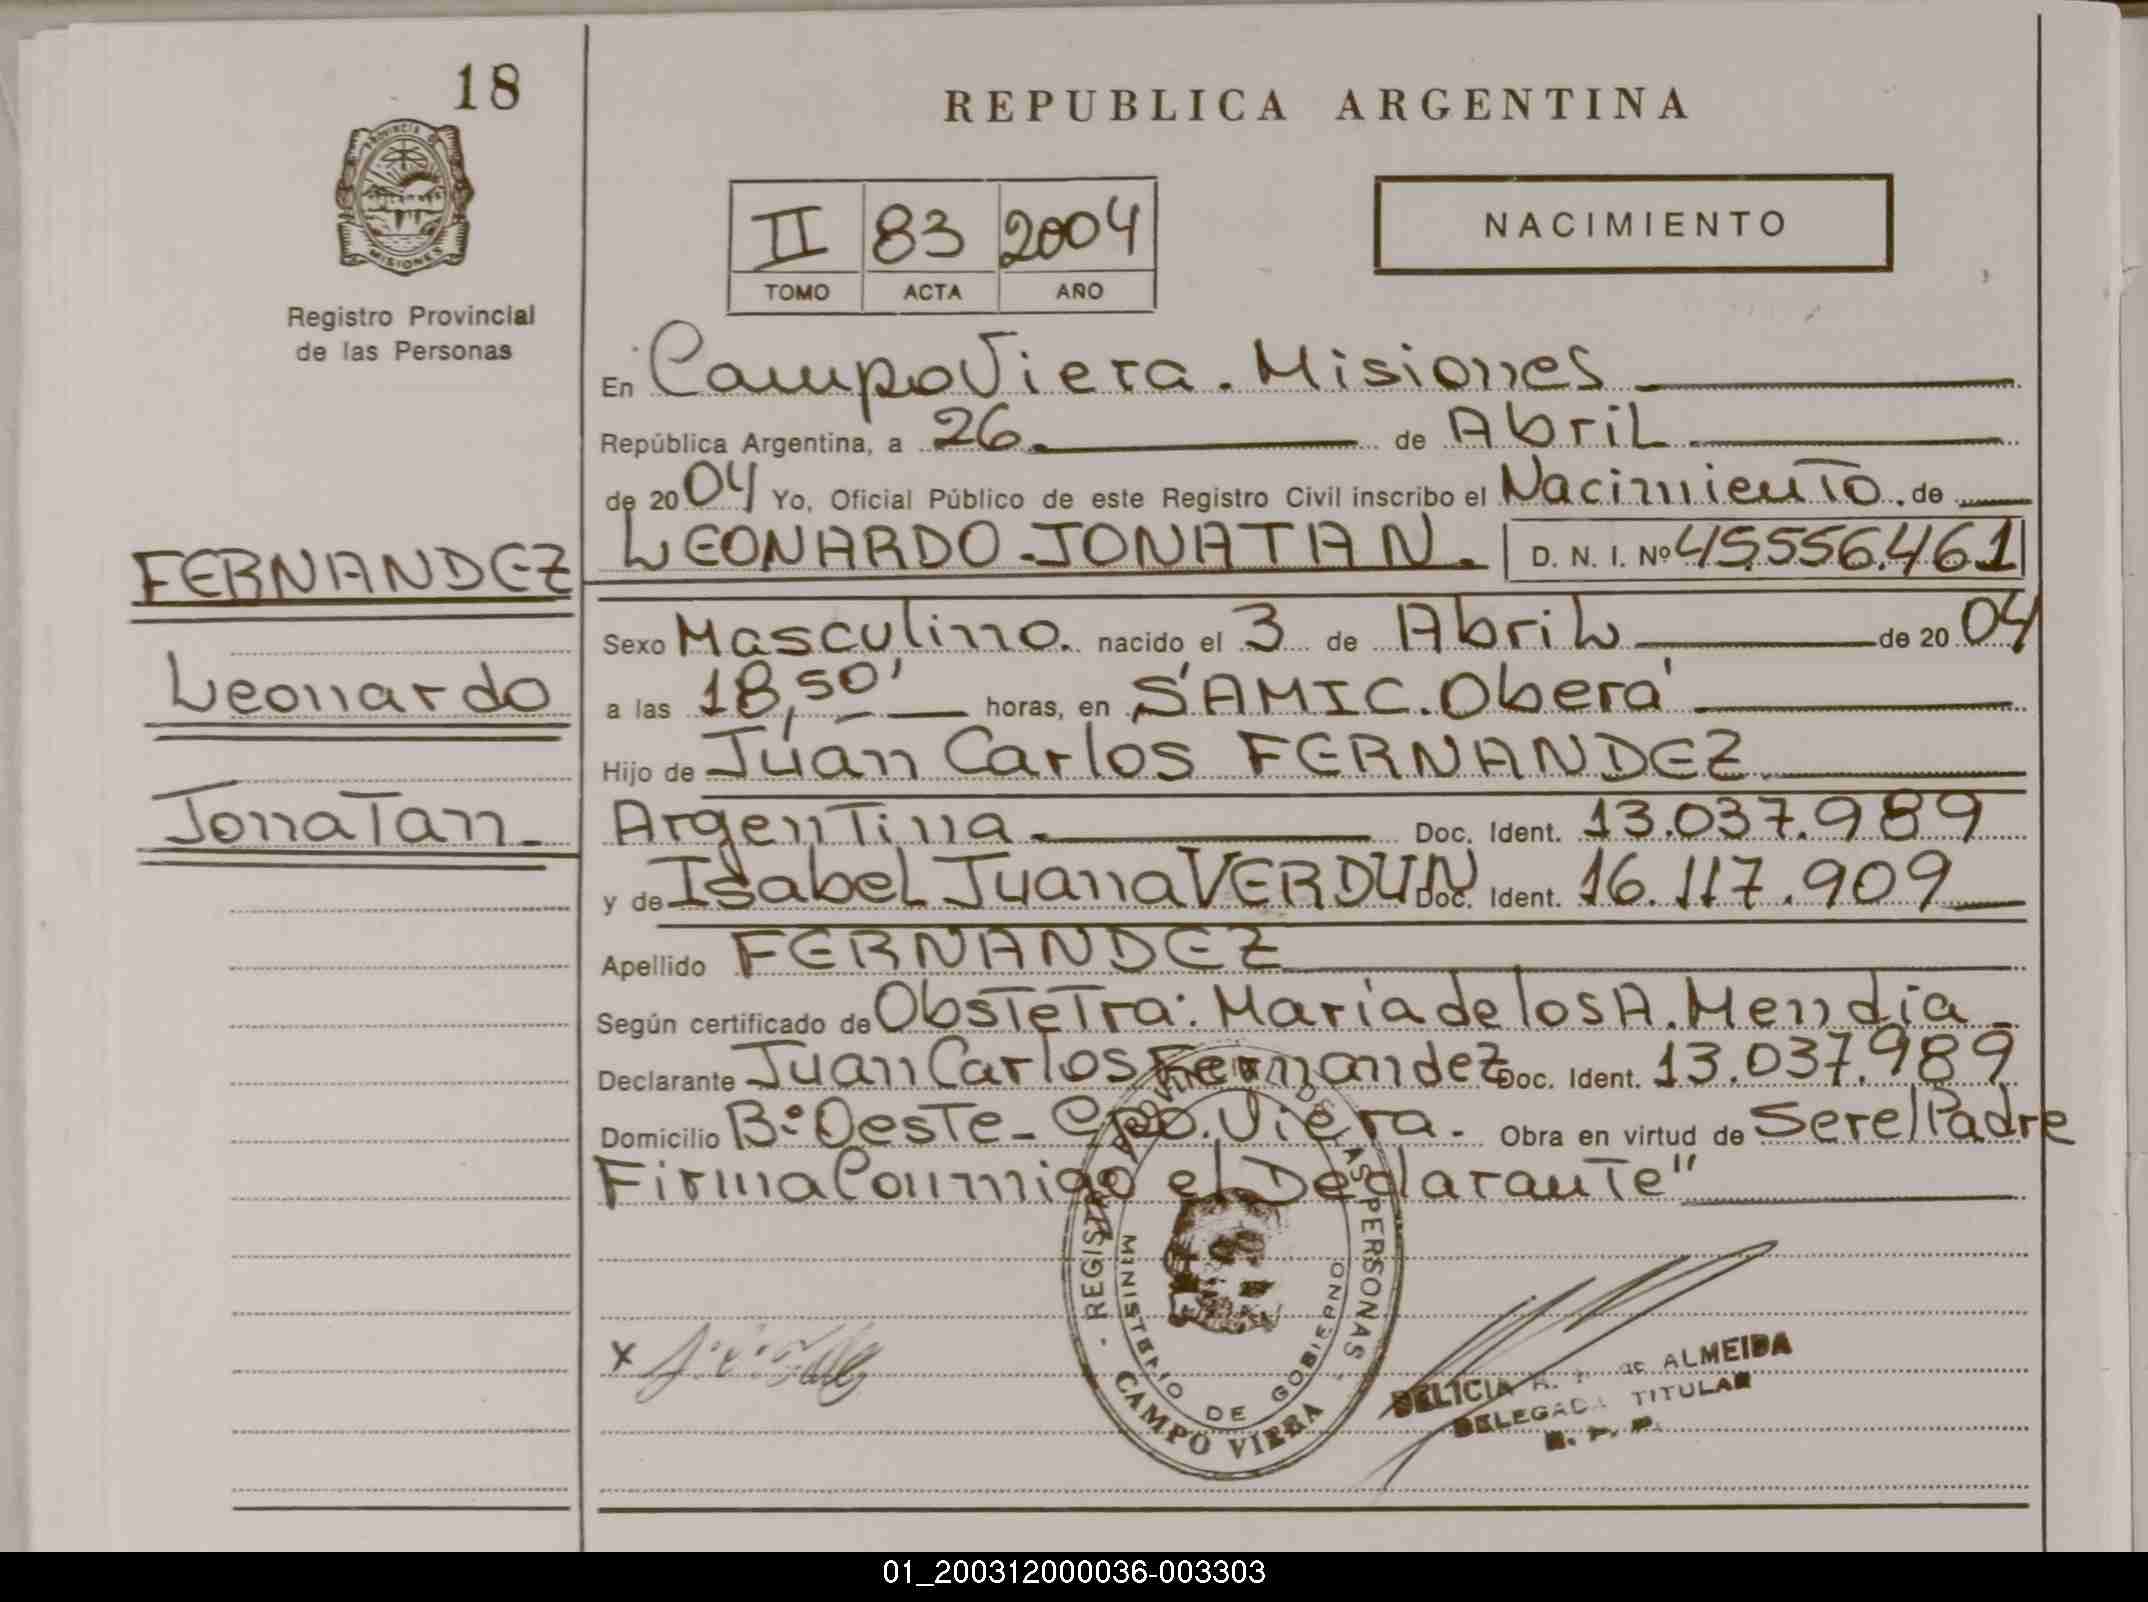 18
REPUBLICA ARGENTINA
PROVINCIA DE
MISIONES
Registro Provincial
de las Personas
II 83 2004
TOMO ACTA AÑO
NACIMIENTO
En Campo Viera. Misiones
República Argentina, a 26 de Abril
de 2004 Yo, Oficial Público de este Registro Civil inscribo el Nacimiento de
FERNANDEZ
LEONARDO JONATAN. D. N. I. Nº 45.556.461
Sexo Masculino. nacido el 3 de Abril de 2004
Leonardo
a las 18,50' horas, en SAMIC. Oberá
Hijo de Juan Carlos FERNANDEZ
Jonatan
Argentina Doc. Ident. 13.037.989
y de Isabel Juana VERDUN Doc. Ident. 16.117.909
Apellido FERNANDEZ
Según certificado de Obstetra: María de los A. Mendia
Declarante Juan Carlos Fernandez Doc. Ident. 13.037.989
Domicilio Bº Oeste - Cpo. Viera. Obra en virtud de Ser el Padre
Firma Conmigo el Declarante"
REGISTRO PROVINCIAL DE LAS PERSONAS
MINISTERIO DE GOBIERNO
CAMPO VIERA
X
DELICIA de ALMEIDA
DELEGADA TITULAR
01_200312000036-003303